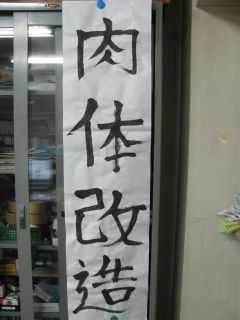 肉体改造